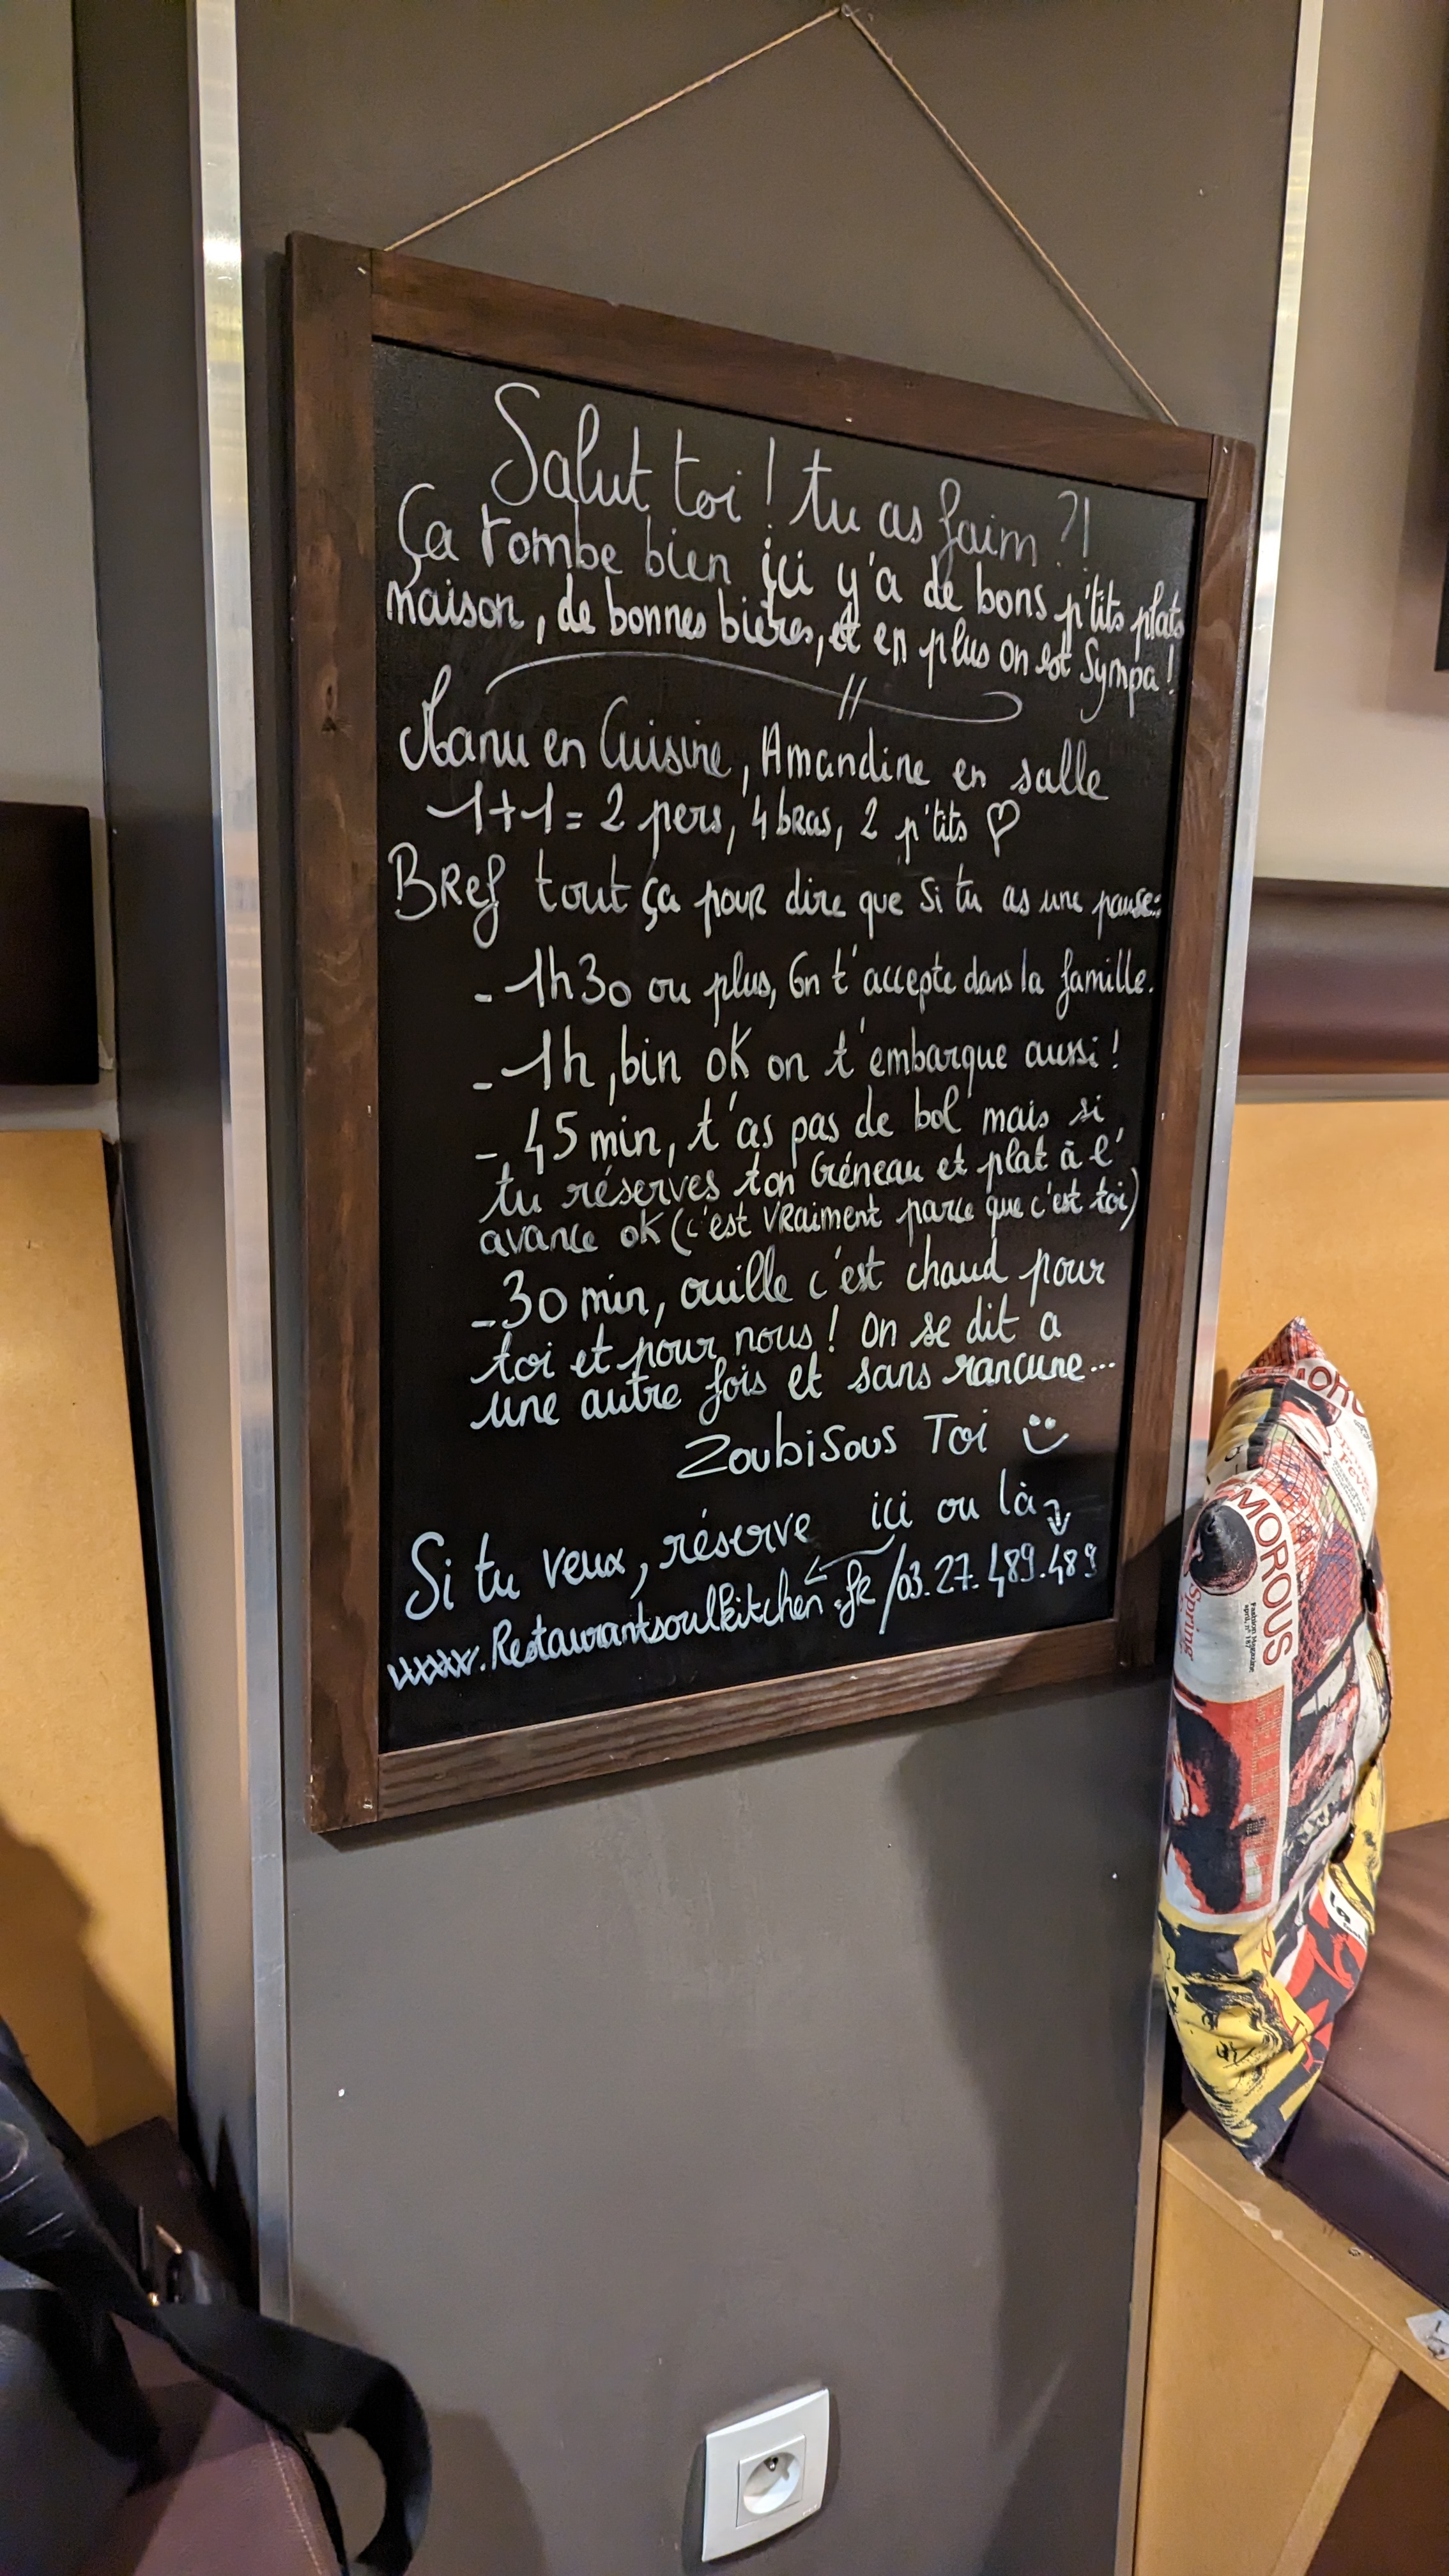 Salut toi ! tu as faim ?!
Ça tombe bien ici y'a de bons p'tits plats
maison, de bonnes bières, et en plus on est Sympa !
Manu en Cuisine, Amandine en salle
1+1 = 2 pers, 4 bras, 2 p'tits ♡
BRef tout ça pour dire que si tu as une pause :
- 1h30 ou plus, On t'accepte dans la famille.
- 1h, bin ok on t'embarque aussi !
- 45 min, t'as pas de bol mais si
tu réserves ton Créneau et plat à l'
avance ok (c'est vraiment parce que c'est toi)
- 30 min, ouille c'est chaud pour
toi et pour nous ! On se dit a
une autre fois et sans rancune...
Zoubisous Toi
Si tu veux, réserve ici ou là
www.Restaurantsoulkitchen.fr / 03.27.489.489
MOROUS
MOROUS
Spring
Fashion Magazine